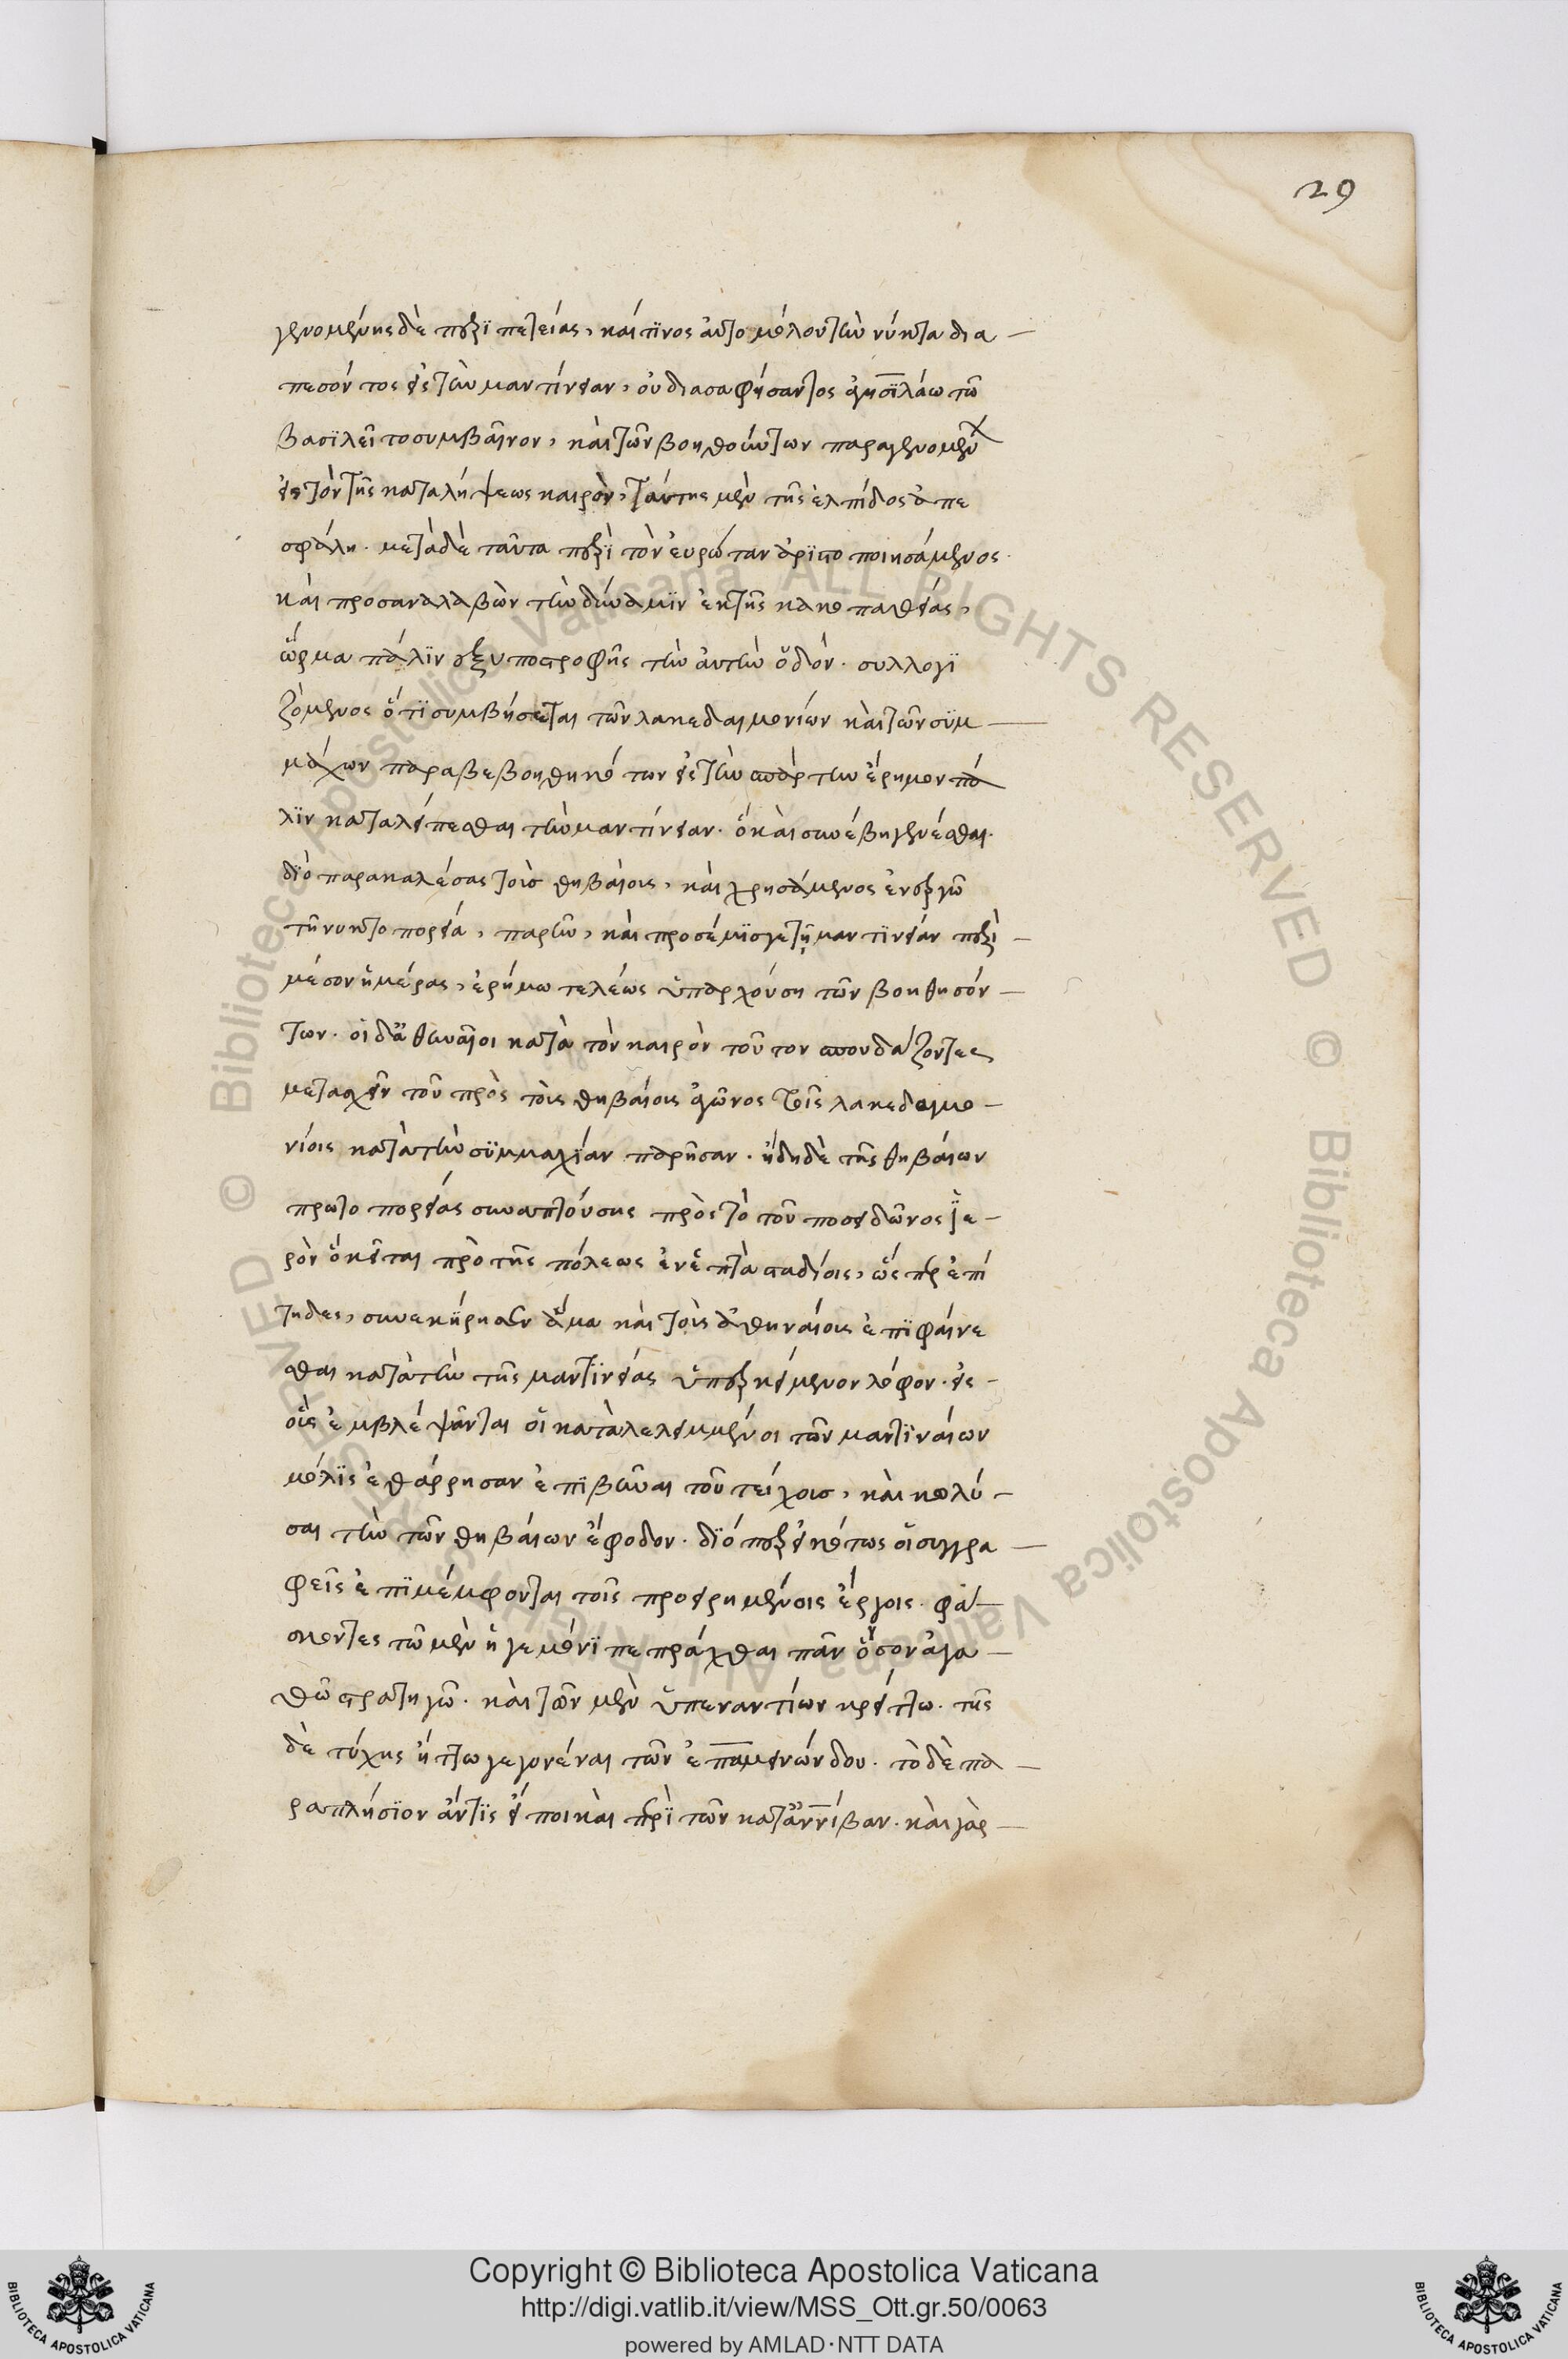 29
γενομένης δὲ περϊπετείας, καί τϊνος ἀυτομόλου τὴν νύκτα δια
πεσόντος εἰς τὴν μαντίνειαν, οὐ διασαφήσαντος ἀγησϊλάω τῶ
βασϊλεῖ το συμβαῖνον, καὶ τῶν βοηθούντων παραγενομένων
εἰς τὸν τῆς καταλήψεως καιρὸν, ταύτης μὲν τῆς ἐλπίδος ἀπε
σφάλη. μετὰ δὲ ταῦτα περϊ τὸν ἐυρώταν ἀρϊστοποιησάμενος.
καὶ προσαναλαβὼν τὴν δύναμϊν ἐκ τῆς κακοπαθείας,
ὥρμα πάλϊν ἐξυποστροφῆς τὴν ἀυτὴν ὅδόν. συλλογϊ
ζόμενος ὅτϊ συμβήσεται τῶν λακεδαιμονίων καὶ τῶν σϋμ
μάχων παραβεβοηθηκότων εἰς τὴν σπάρτην ἔρημον πά
λϊν καταλείπεσθαι τὴν μαντίνειαν. ὅ καὶ συνέβη γενέσθαι.
δϊὸ παρακαλέσας τοὺσ θηβαίους, καὶ χρησάμενος ἐνεργῶ
τῆ νυκτοπορεία, παρῆν, καὶ προσέμϊσγε τῆ μαντϊνείαν περὶ
μέσον ἡμέρας, ἐρήμω τελέως ὑπαρχούση τῶν βοηθησόν
των. οἱ δ᾽ ἀθηναῖοι κατὰ τὸν καιρὸν τοῦτον σπουδάζοντες
μετασχεῖν τοῦ πρὸς τοὺς θηβαίους ἀγῶνος τοῖς λακεδαιμο
νίοις κατὰ τὴν σϋμμαχϊαν παρῆσαν. ἤδη δὲ τῆς θηβαίων
πρωτοπορείας συναπτούσης πρὸς τὸ τοῦ ποσειδῶνος ϊε
ρὸν ὅ κεῖται πρὸ τῆς πόλεως ἐν ἑπτὰ σταδίοις, ὥσπερ ἐπί
τηδες, συνεκύρησεν ἅμα καὶ τοὺς ἀθηναίους ἐπϊφαίνε
σθαι κατὰ τὴν τῆς μαντϊνείας ὑπερκείμενον λόφον. εἰς
οὓς ἐμβλέψανται οἱ καταλελειμμένοι τῶν μαντϊναίων
μόλϊς ἐθάρρησαν ἐπϊβῆναι τοῦ τείχους, καὶ κωλύ
σαι τὴν τῶν θηβαίων ἔφοδον. δϊόπερ εἰκότως οἱ συγγρα
φεῖς ἐπϊμέμφονται τοῖς προειρημένοις ἔργοις. φά
σκοντες τῶ μὲν ἡγεμόνϊ πεπράχθαι πᾶν ὅσον ἀγα
θῶ στρατηγῶ. καὶ τῶν μὲν ὑπεναντίων κρείττω. τῆς
δὲ τύχης ἥττω γεγονέναι τῶν ἐπαμεινώνδου. τὸ δὲ πα
ραπλήσϊον ἄντϊς εἴποι καὶ περὶ τῶν κατ᾽ ἀννίβαν. καὶ γὰρ
© Biblioteca Apostolica Vaticana ALL RIGHTS RESERVED © Biblioteca Apostolica Vaticana ALL RIGHTS RESERVED
Copyright © Biblioteca Apostolica Vaticana
http://digi.vatlib.it/view/MSS_Ott.gr.50/0063
powered by AMLAD·NTT DATA
BIBLIOTECA APOSTOLICA VATICANA
BIBLIOTECA APOSTOLICA VATICANA